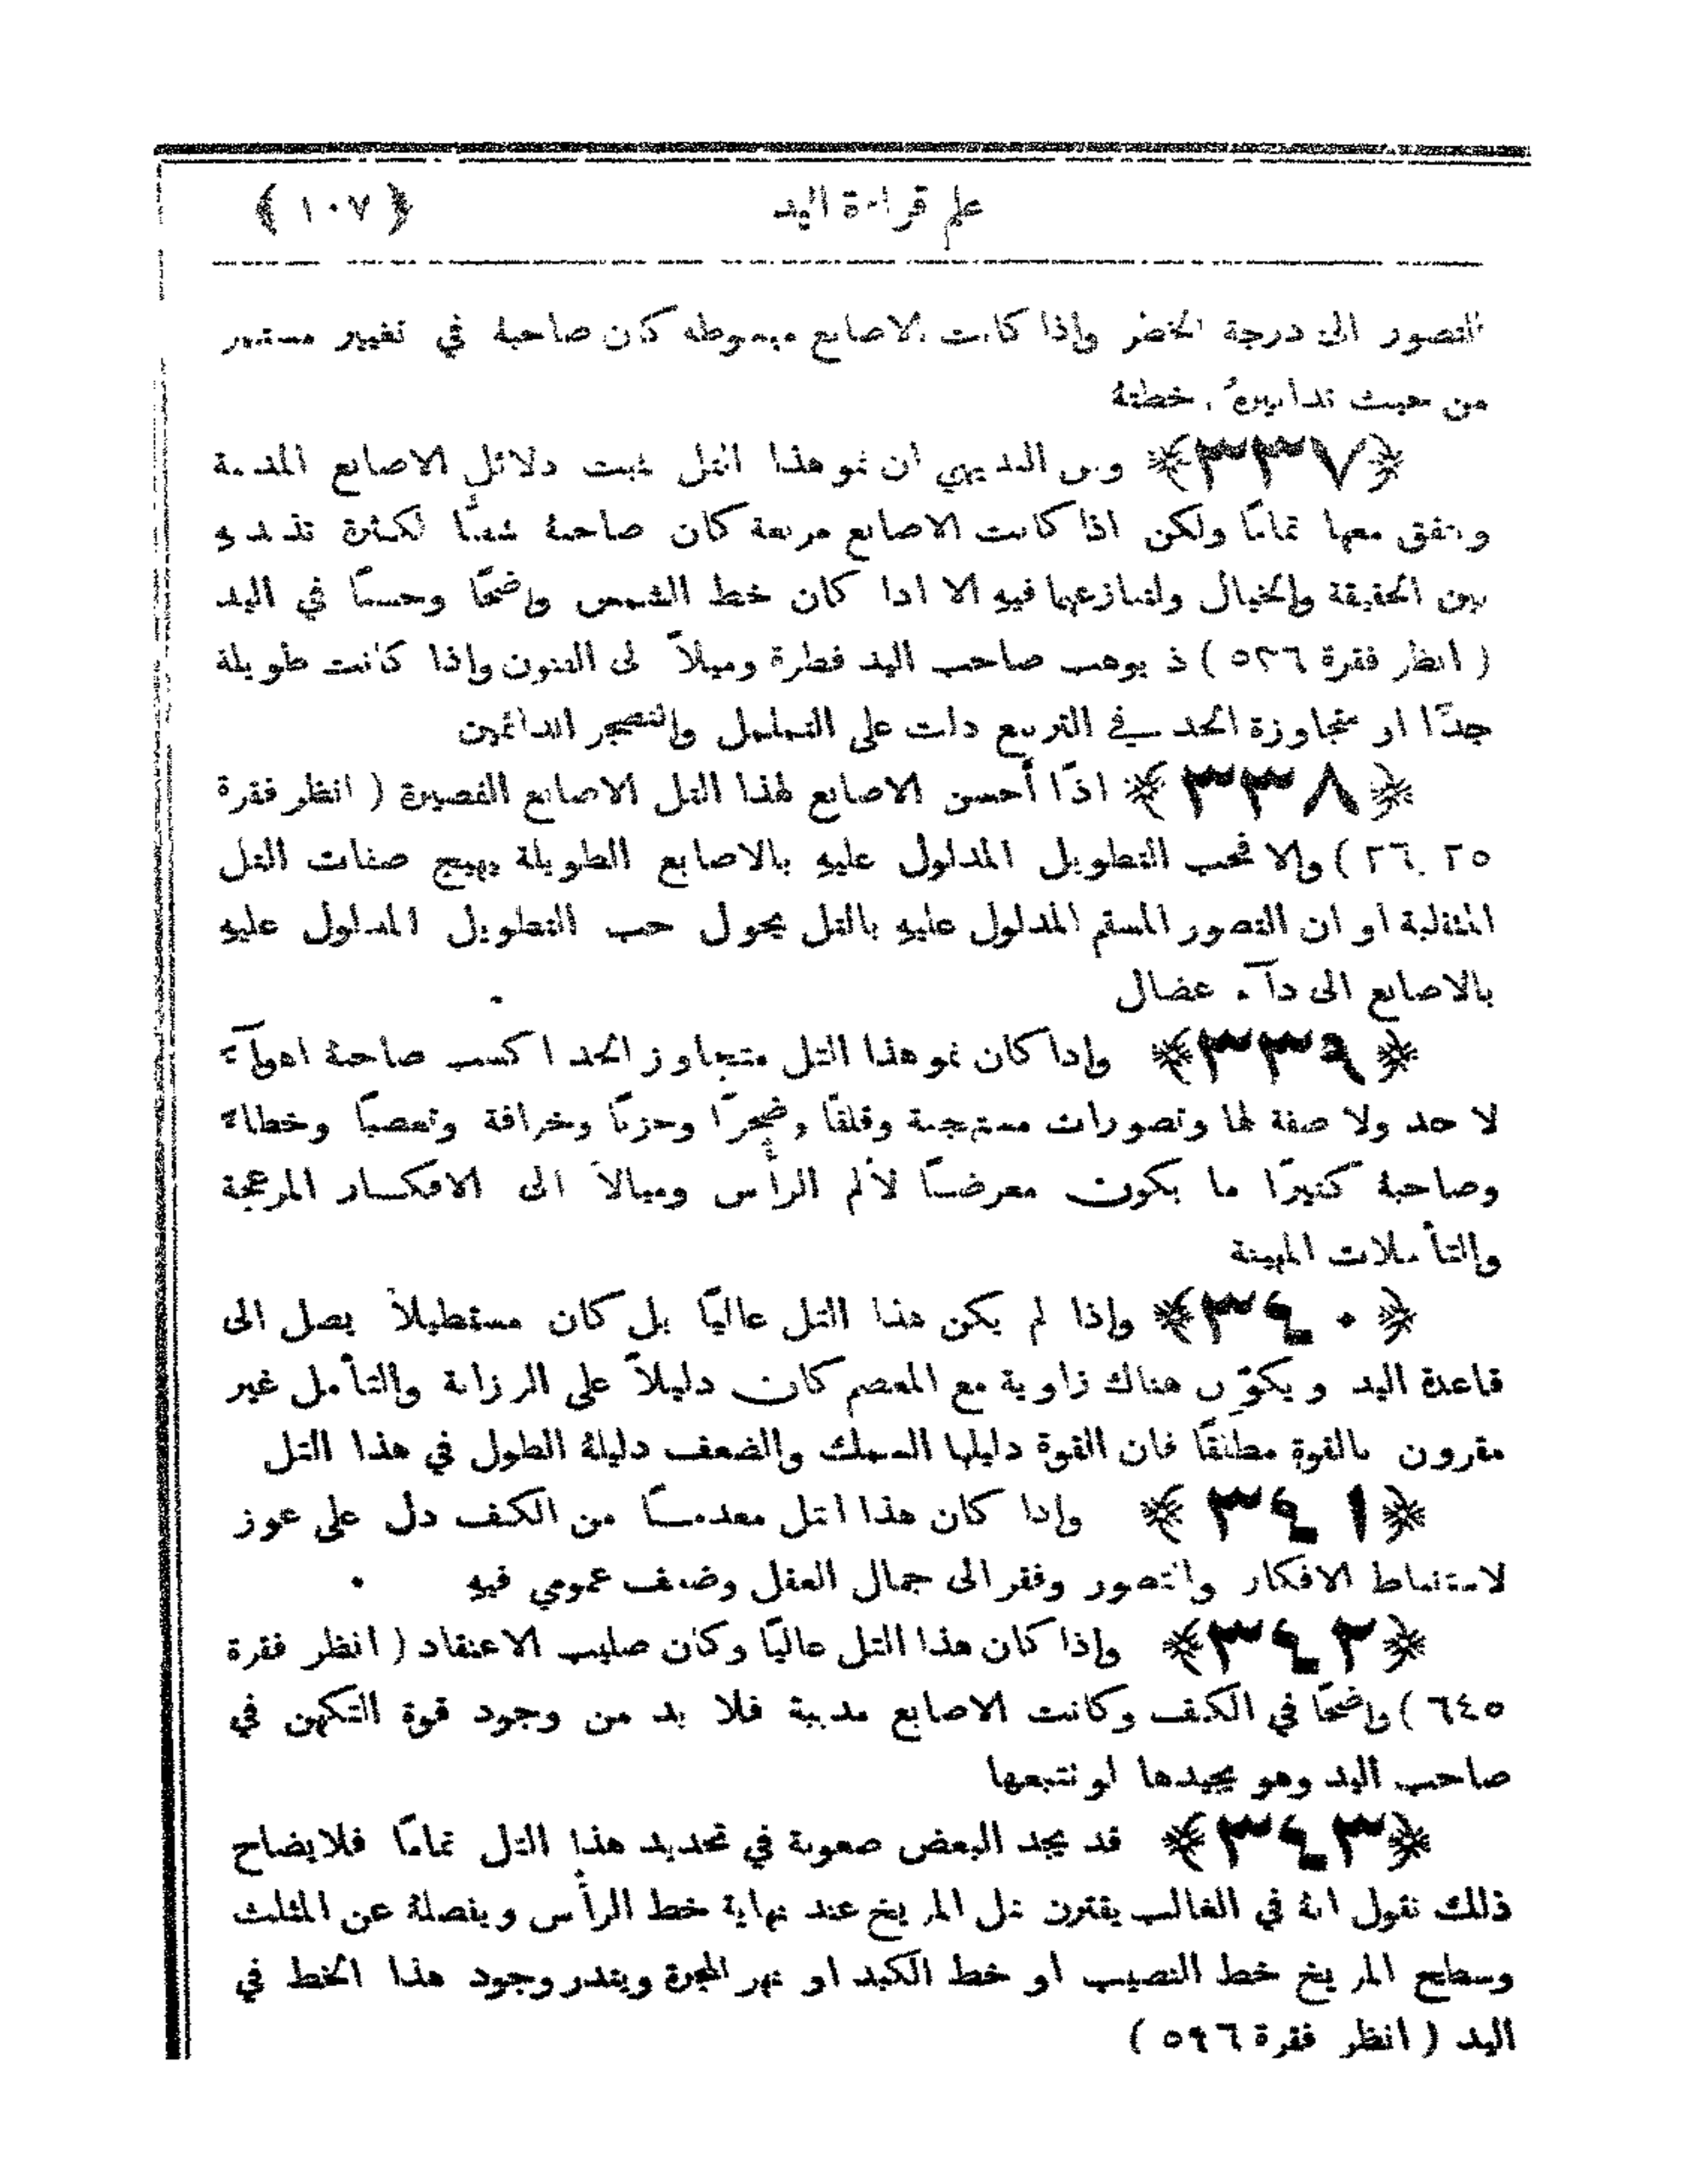 علم قراءة اليد ﴿ ١٠٧ ﴾
التصور الى درجة الخطر واذا كانت الاصابع مبسوطه كان صاحبهُ في تغيير مستمر
من حيث تدابيرهُ وخطتهُ
﴿٣٣٧﴾ ومن البديهي ان نمو هذا التل يثبت دلائل الاصابع المقدمة
ويتفق معها تمامًا ولكن اذا كانت الاصابع مربعة كان صاحبهُ شقيًّا لكثرة تذبذبهِ
بين الحقيقة والخيال ولتنازعهما فيهِ الا اذا كان خط الشمس واضحًا وحسنًا في اليد
( انظر فقرة ٥٢٦ ) اذ يوهب صاحب اليد فطرة وميلاً الى الفنون واذا كانت طويلة
جدًّا او متجاوزة الحد في التربيع دلت على التململ والتضجر الدائمين
﴿٣٣٨﴾ اذًا أحسن الاصابع لهذا التل الاصابع القصيرة ( انظر فقرة
٢٥ ٢٦ ) والا فحب التطويل المدلول عليهِ بالاصابع الطويلة يهيج صفات التل
المتقلبة او ان التصور المستمر المدلول عليهِ بالتل يحول حب التطويل المدلول عليهِ
بالاصابع الى دآء عضال
﴿٣٣٩﴾ واذا كان نمو هذا التل متجاوز الحد اكسب صاحبهُ اهوآءً
لا حد ولا صفة لها وتصورات مسترجنة وقلقًا وضجرًا وحزنًا وخرافة وتعصبًا وخطاءً
وصاحبهُ كثيرًا ما يكون معرضًا لألم الرأس وميالاً الى الافكار المزعجة
والتأملات المهينة
﴿٣٤٠﴾ واذا لم يكن هذا التل عاليًا بل كان مستطيلاً يصل الى
قاعدة اليد ويكوّن هناك زاوية مع المعصم كان دليلاً على الرزانة والتأمل غير
مقرون بالقوة مطلقًا فان القوة دليلها السمك والضعف دليلهُ الطول في هذا التل
﴿٣٤١﴾ واذا كان هذا التل معدمًا من الكف دل على عوز
لاستنباط الافكار والتصور وفقر الى جمال العقل وضعف عمومي فيهِ
﴿٣٤٢﴾ واذا كان هذا التل عاليًا وكان صليب الاعتقاد ( انظر فقرة
٦٤٥ ) واضحًا في الكف وكانت الاصابع مدببة فلا بد من وجود قوة التكهن في
صاحب اليد وهو يجيدها لو تتبعها
﴿٣٤٣﴾ قد يجد البعض صعوبة في تحديد هذا التل تمامًا فلايضاح
ذلك نقول انهُ في الغالب يقترن بتل المريخ عند نهاية خط الرأس ويفصلهُ عن المثلث
وسطح المريخ خط النصيب او خط الكبد او نهر المجرة ويندر وجود هذا الخط في
اليد ( انظر فقرة ٥٩٦ )